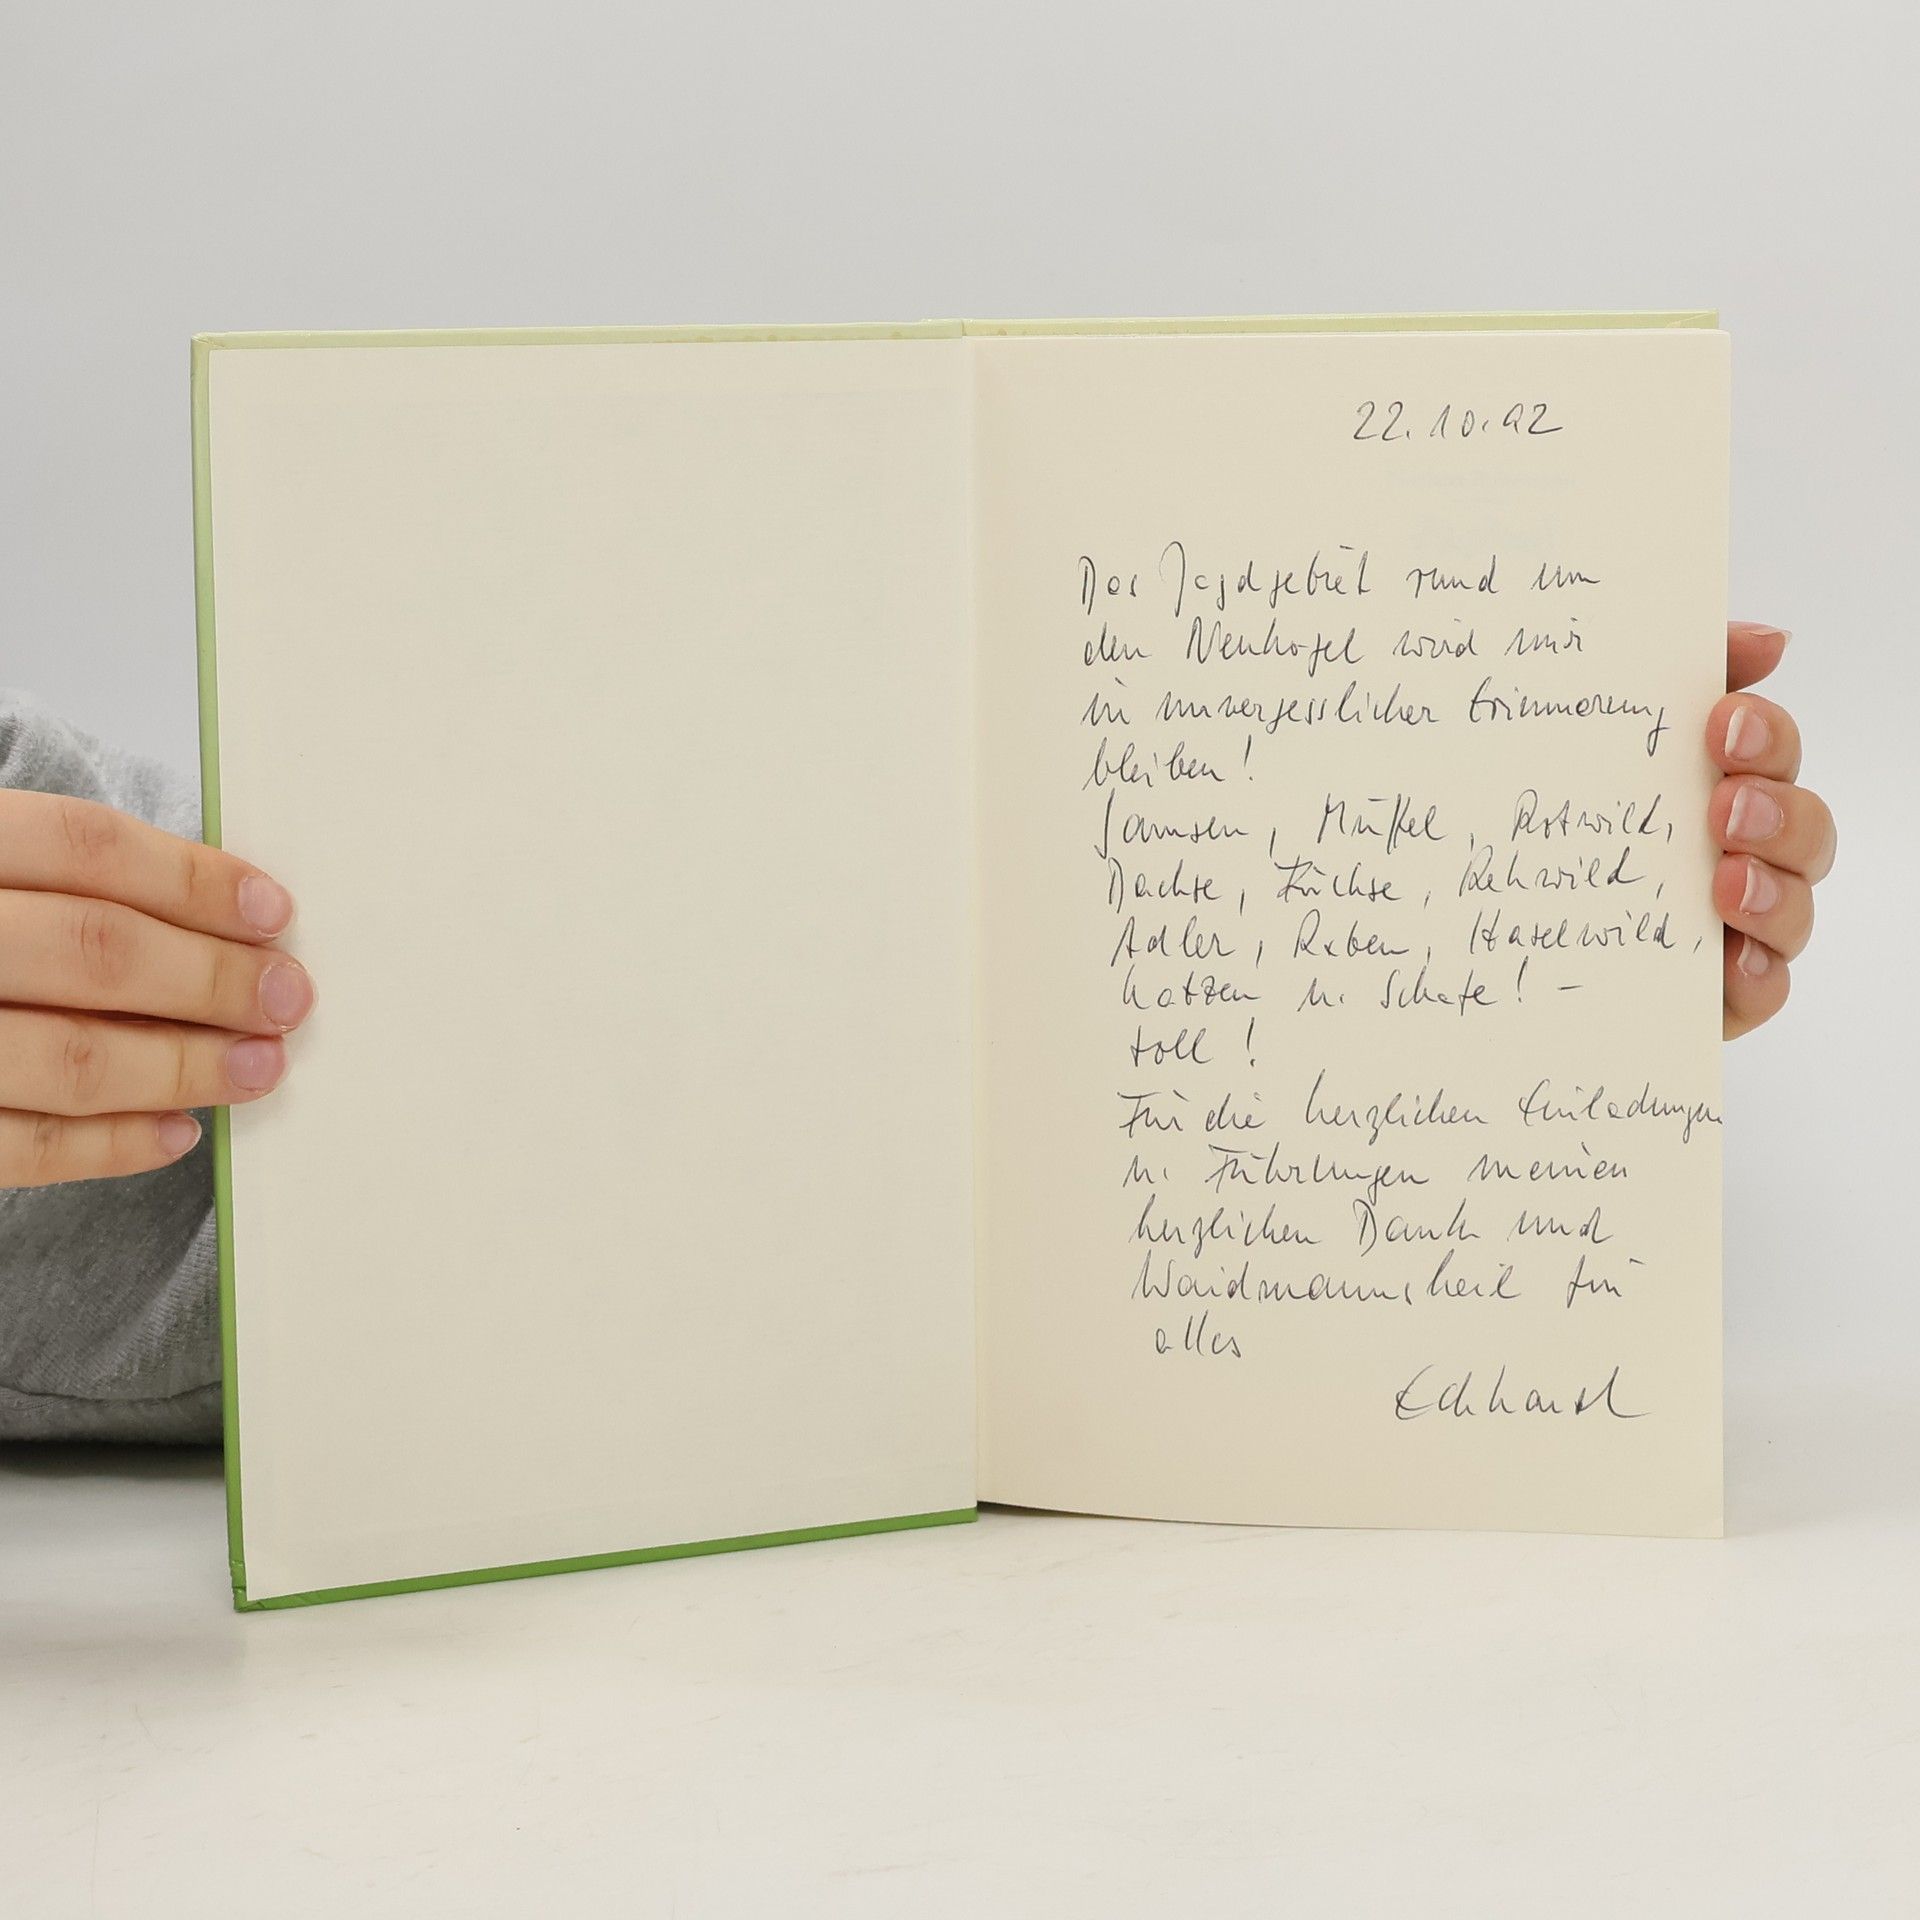 22.10.92
Das Jagdgebiet rund um
den Neukogel wird mir
in unvergesslicher Erinnerung
bleiben!
Gamsen, Muffel, Rotwild,
Dachse, Füchse, Rehwild,
Adler, Raben, Haselwild,
Katzen u. Schafe! -
toll!
Für die herzlichen Einladungen
u. Führungen meinen
herzlichen Dank und
Waidmannsheil für
alles
Eckhard